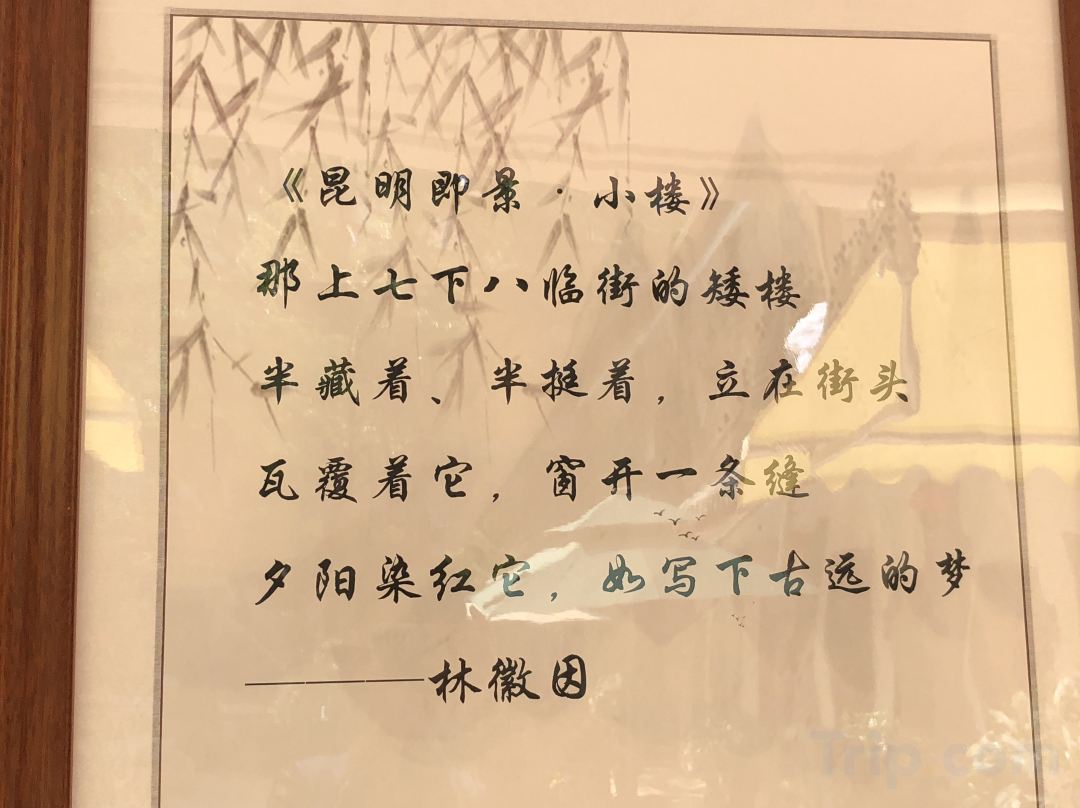 《昆明即景·小楼》
那上七下八临街的矮楼
半藏着、半挺着，立在街头
瓦覆着它，窗开一条缝
夕阳染红它，如写下古远的梦
————林徽因
Trip.com